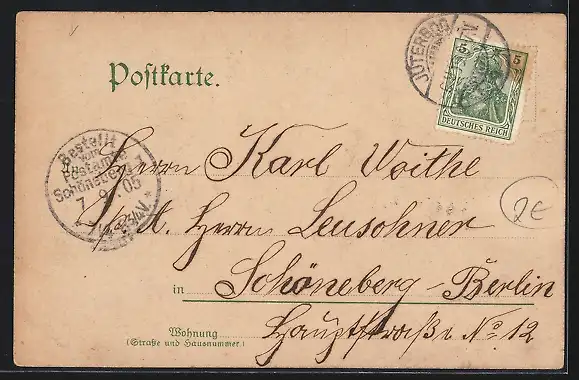 JÜTERBOG
5 5
DEUTSCHES REICH
Postkarte.
Bestellt
vom
Postamte
Schöneberg
7.9.05
Herrn Karl Woithe
Herrn Leusohner
2E
in Schöneberg-Berlin
Wohnung
(Straße und Hausnummer)
Hauptstraße No. 12